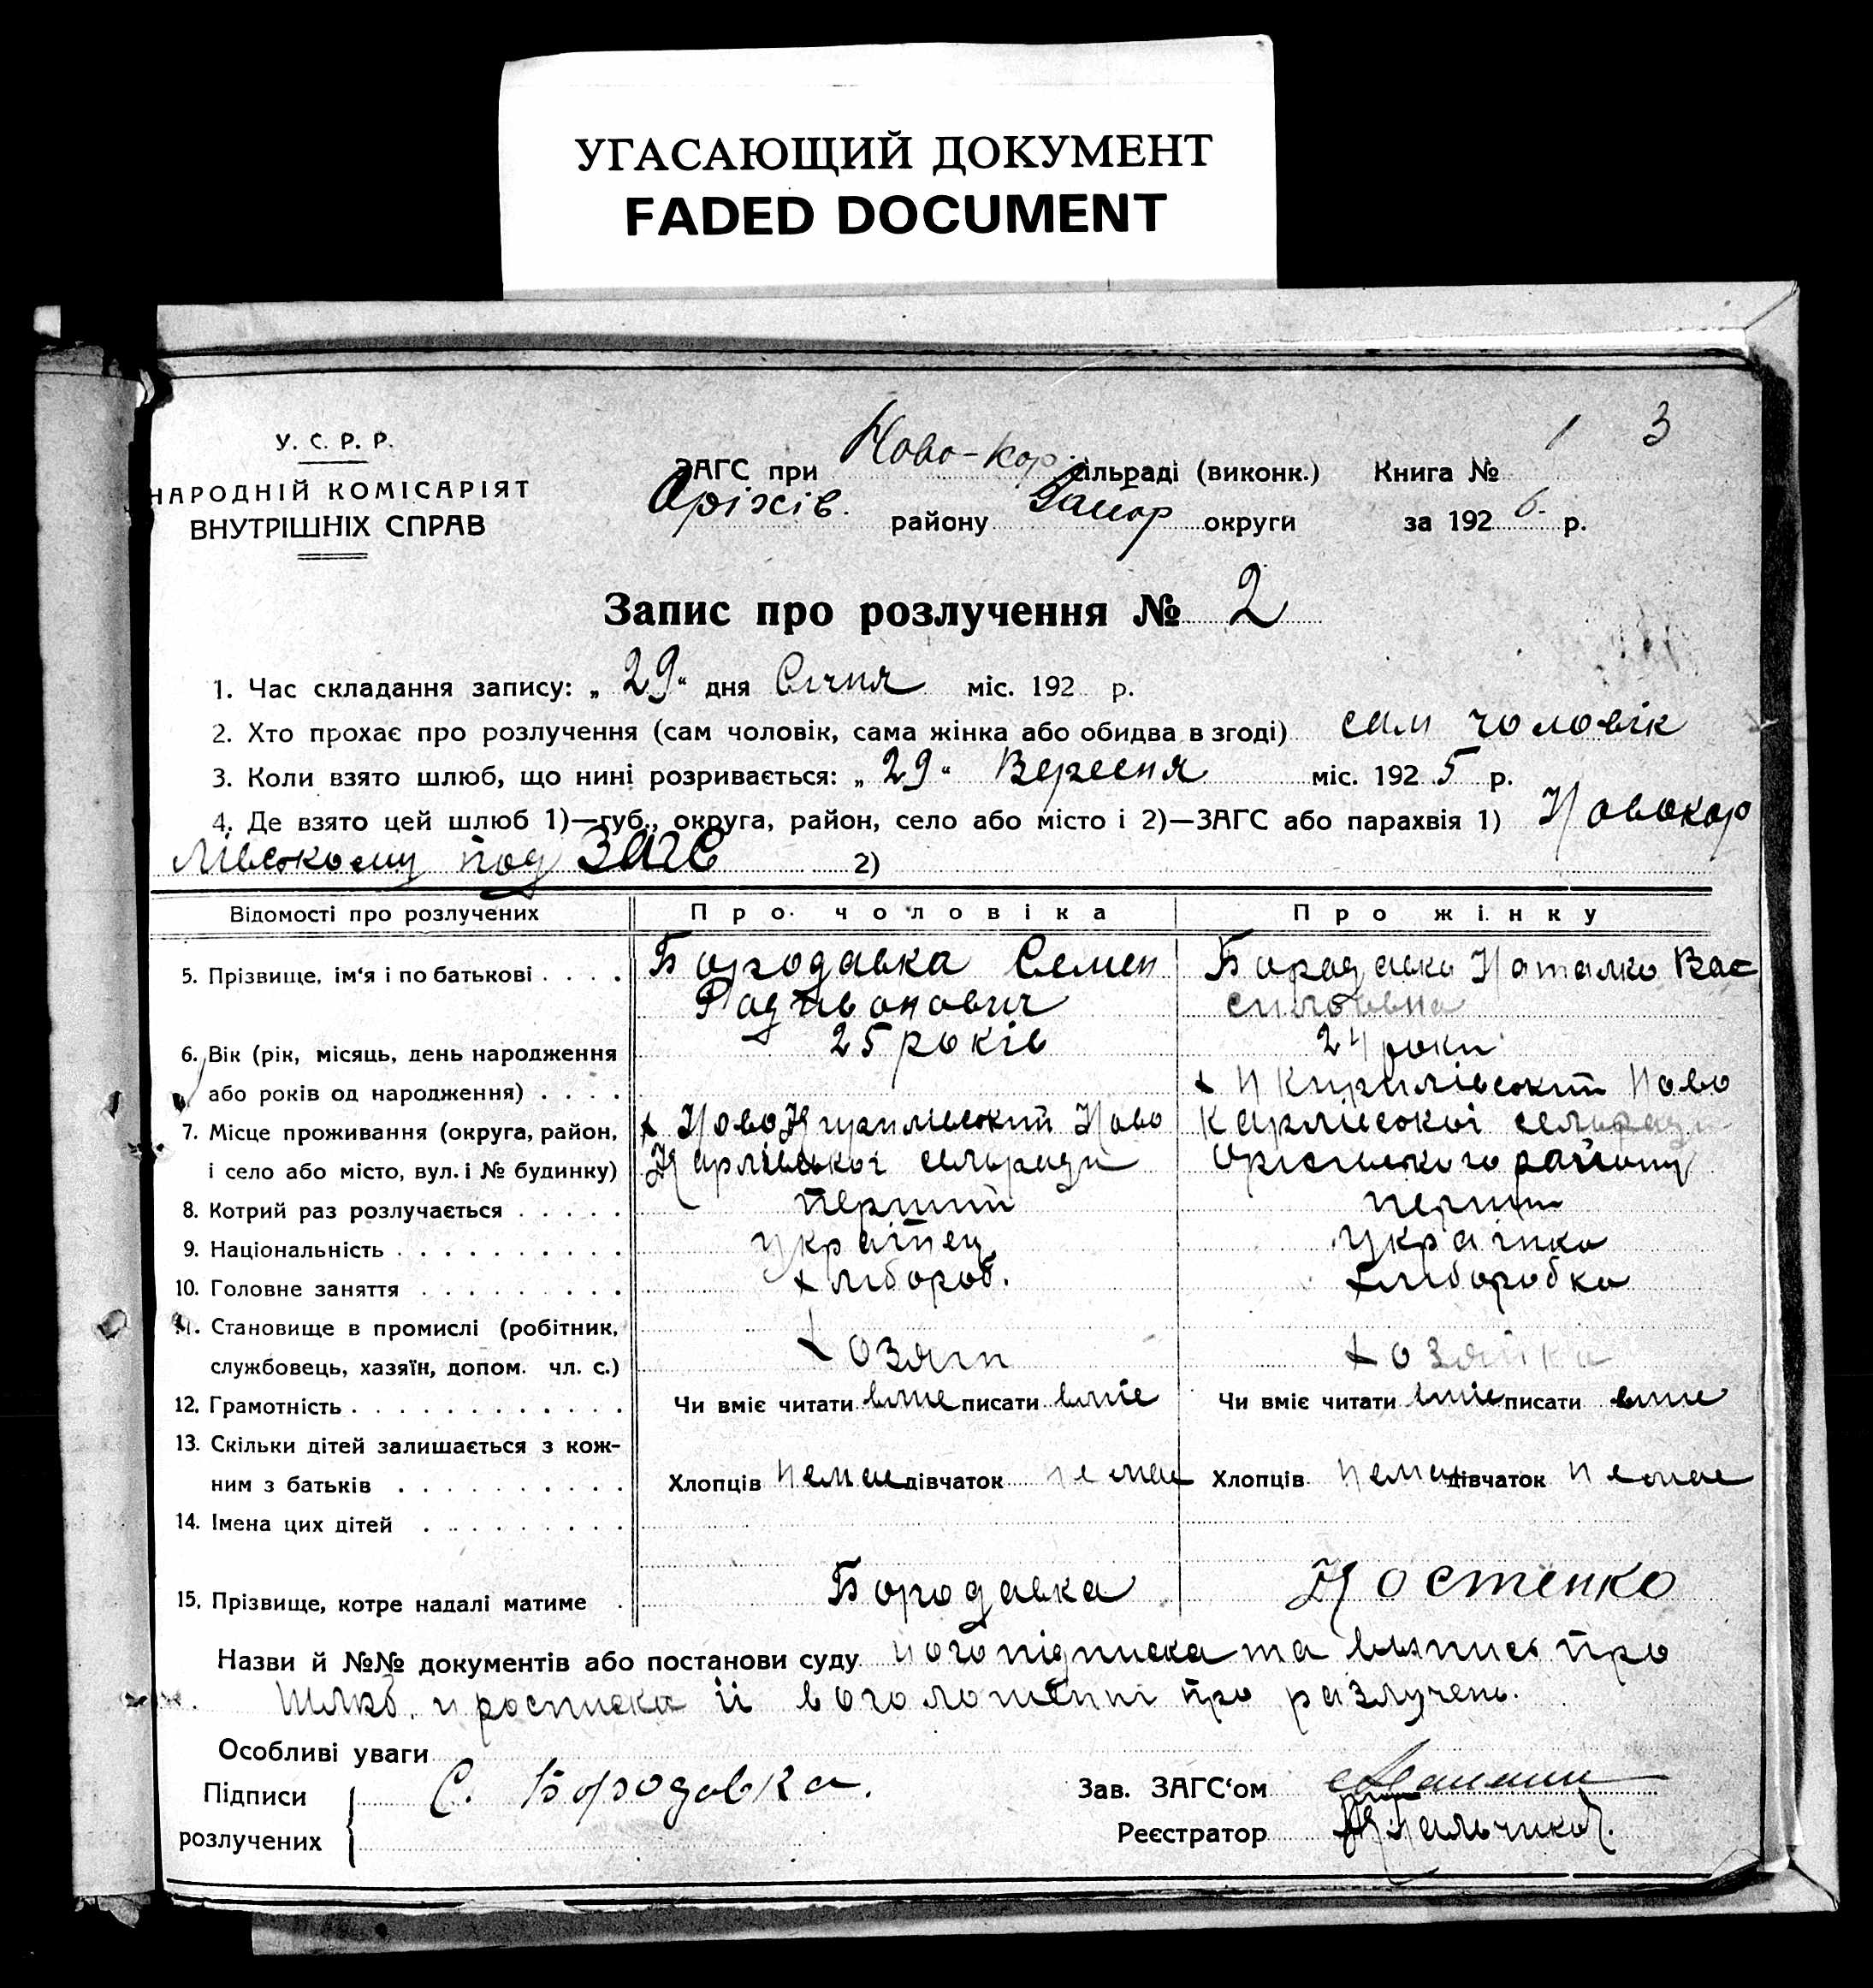 УГАСАЮЩИЙ ДОКУМЕНТ
FADED DOCUMENT
3
У. С. Р. Р.
НАРОДНІЙ КОМІСАРІЯТ
ВНУТРІШНІХ СПРАВ
ЗАГС при Ново-Кар. сільраді (виконк.) Книга № 1
Оріхів. району Запор округи за 1926. р.
Запис про розлучення № 2
1. Час складання запису: „29“ дня Січня міс. 192 р.
2. Хто прохає про розлучення (сам чоловік, сама жінка або обидва в згоді) сам чоловік
3. Коли взято шлюб, що нині розривається: „29“ Вересня міс. 1925 р.
4. Де взято цей шлюб 1)—губ., округа, район, село або місто і 2)—ЗАГС або парахвія 1) Новокар
лівському под ЗАГС 2)
Відомості про розлучених Про чоловіка Про жінку
5. Прізвище, ім‘я і по батькові . . . . Бородавка Семен Бородавка Наталка Вас
Родивонович силовна
6. Вік (рік, місяць, день народження 25 років 24 роки
або років од народження) . . . . х Н Кирилівский Ново
7. Місце проживання (округа, район, х Ново Кирилівский Ново Карлівської сельради
і село або місто, вул. і № будинку) Карлівської сельради Оріхівського району
8. Котрий раз розлучається . . . . . перший перший
9. Національність . . . . . . . . . . українец українка
10. Головне заняття . . . . . . . . . хлібороб. хлiборобка
11. Становище в промислі (робітник,
службовець, хазяїн, допом. чл. с.) Хозяин хозяйка
12. Грамотність . . . . . . . . . . . . Чи вміє читати вміе писати вміе Чи вміє читати вміе писати вміе
13. Скільки дітей залишається з кож-
ним з батьків . . . . . . . . . . Хлопців немае дівчаток немае Хлопців нема дівчаток немае
14. Імена цих дітей . . . . . . . . .
15. Прізвище, котре надалі матиме . Бородавка Костенко
Назви й №№ документів або постанови суду його підписка та выпись про
шлюб, и росписка її воголошенні про разлучень.
Особливі уваги
Підписи С. Бородавка. Зав. ЗАГС‘ом
розлучених Реєстратор Пальчиков.